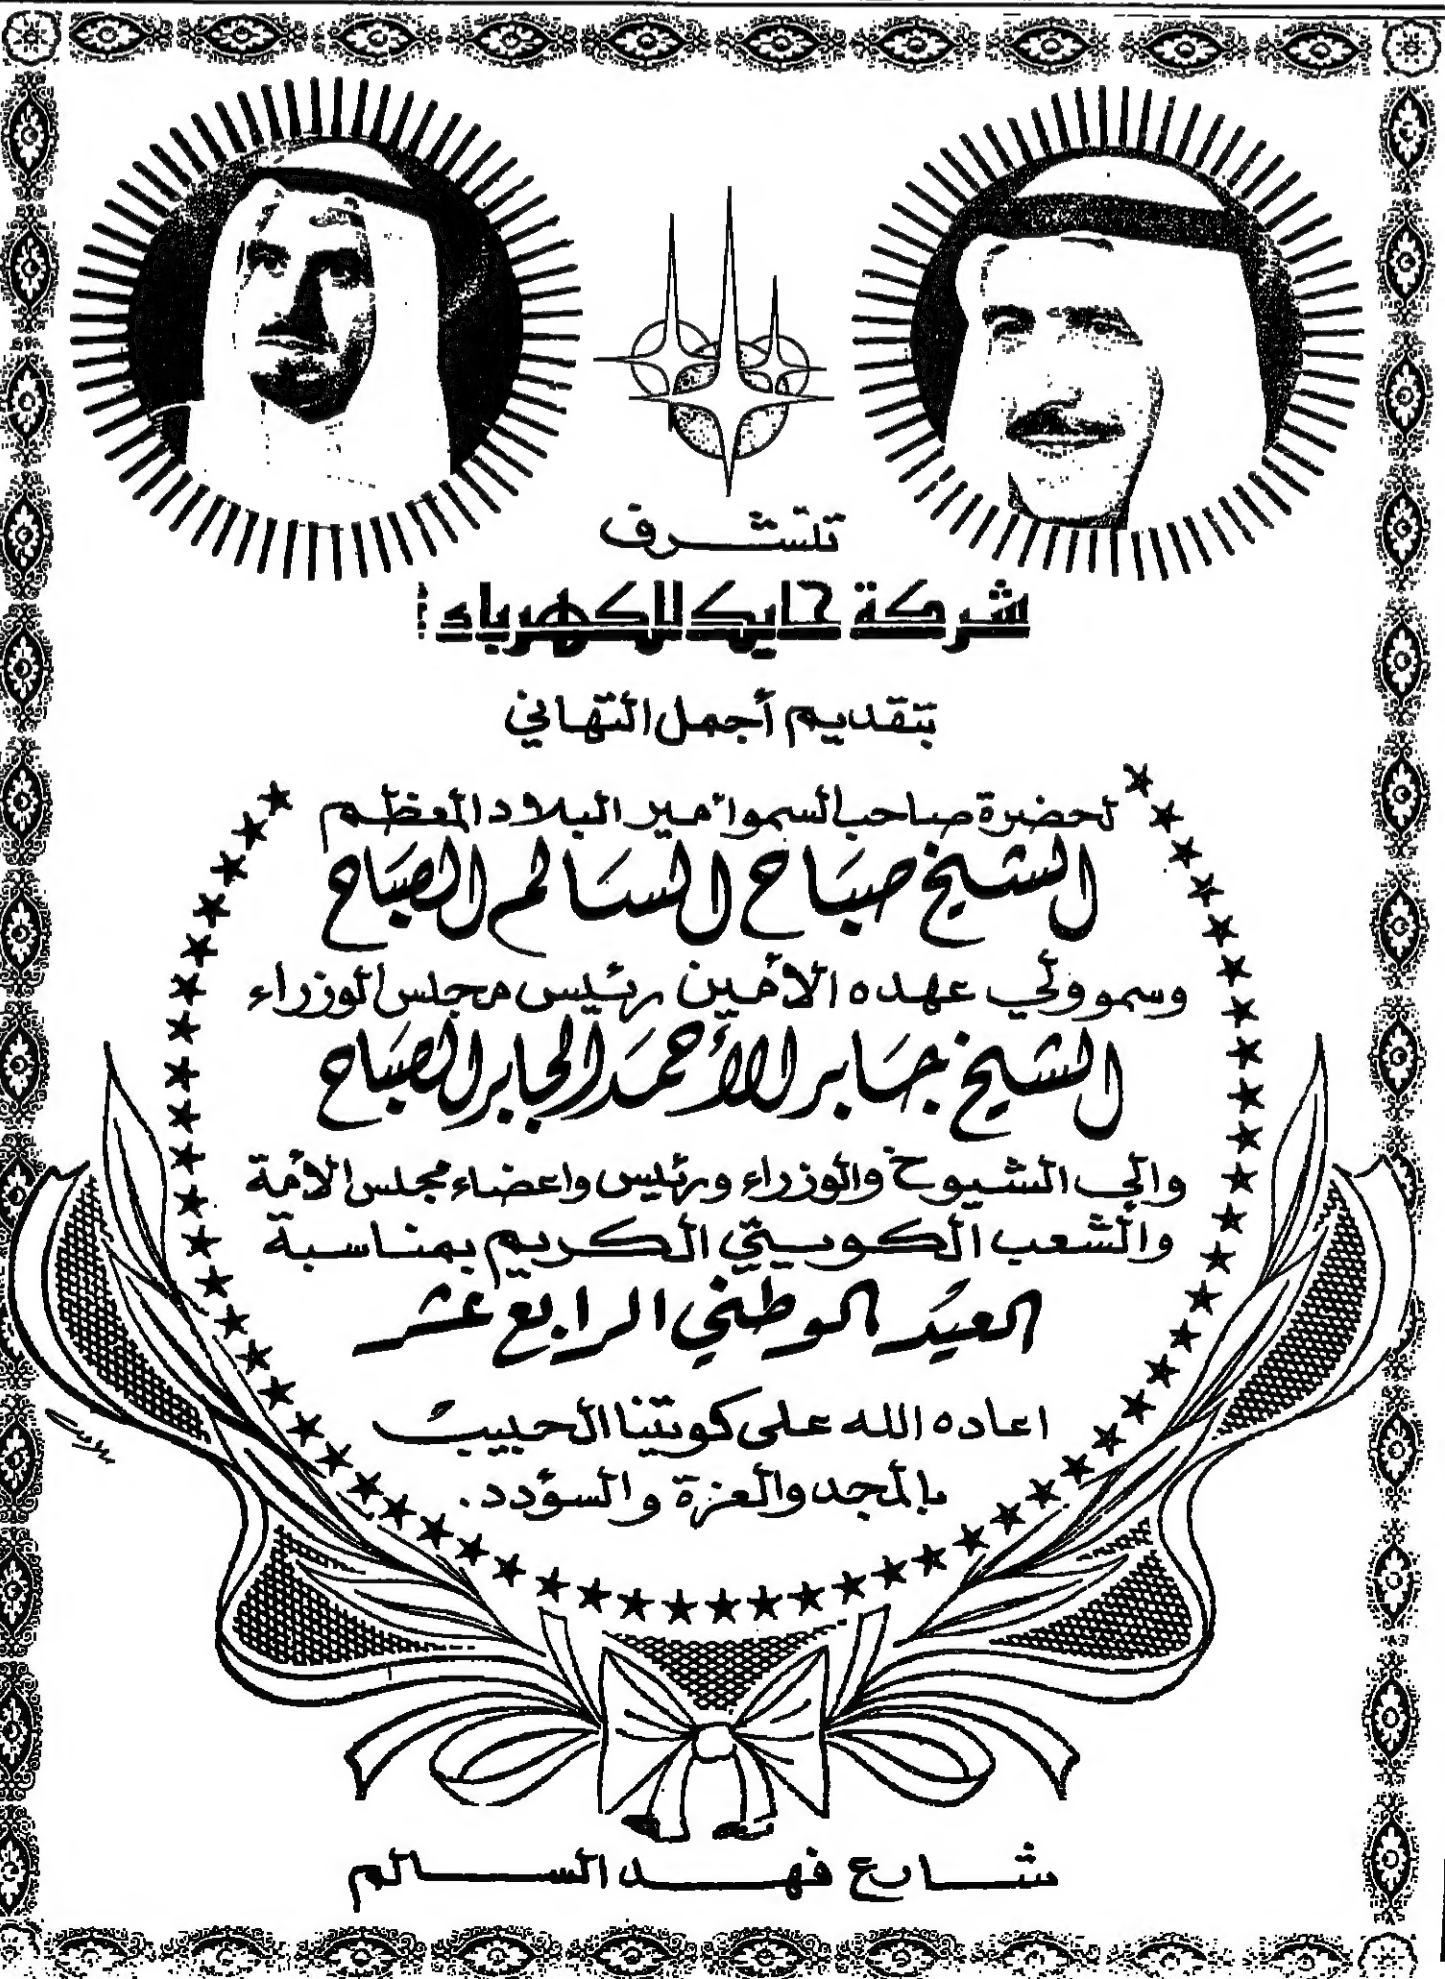 تتشرف
شركة حايك للكهرباء
بتقديم أجمل التهاني
لحضرة صاحب السمو أمير البلاد المعظم
الشيخ صباح السالم الصباح
وسمو ولي عهده الأمين رئيس مجلس الوزراء
الشيخ جابر الأحمد الجابر الصباح
والى الشيوخ والوزراء ورئيس واعضاء مجلس الأمة
والشعب الكويتي الكريم بمناسبة
العيد الوطني الرابع عشر
اعاده الله على كويتنا الحبيب
بالمجد والعزة والسؤدد.
شارع فهد السالم